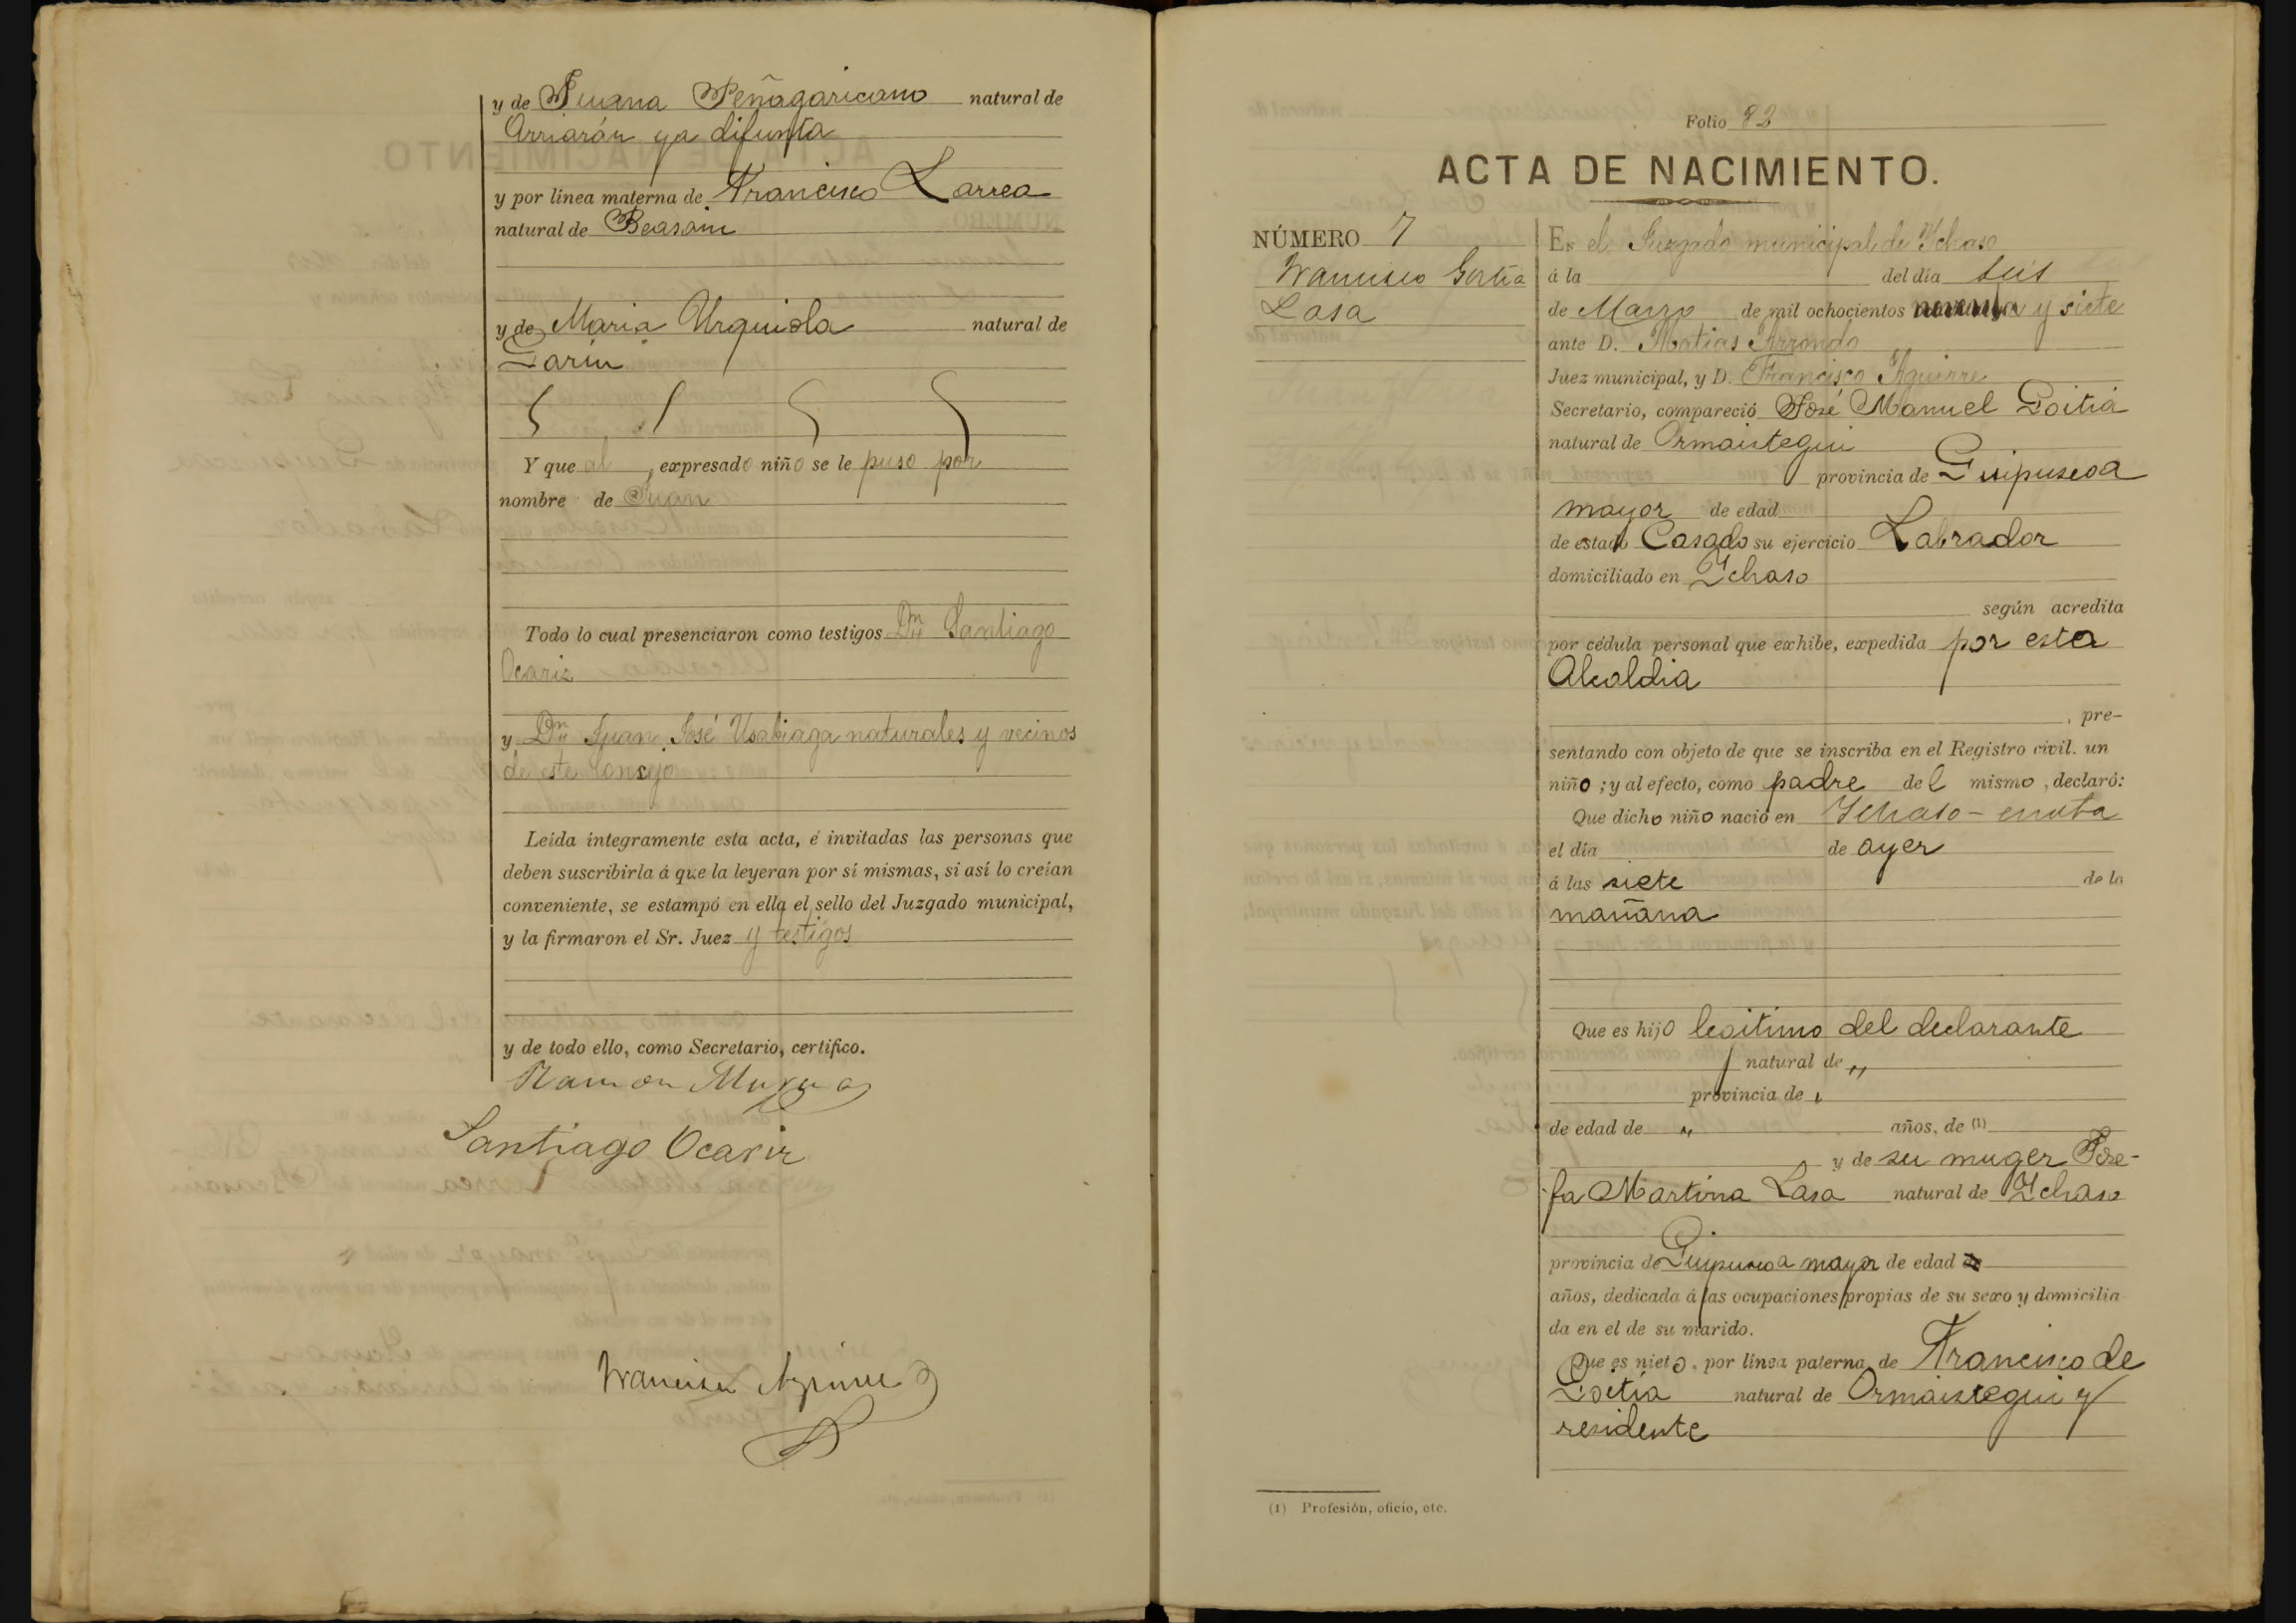 y de Juana Peñagaricano natural de
Arriarán ya difunta
y por línea materna de Francisco Larrea
natural de Beasain
y de Maria Urquiola natural de
Garin
Y que al expresado niño se le puso por
nombre de Juan
Todo lo cual presenciaron como testigos Dn Santiago
Ocariz
y Dn Juan José Usabiaga naturales y vecinos
de este Consejo
Leída íntegramente esta acta, é invitadas las personas que
deben suscribirla á que la leyeran por sí mismas, si así lo creían
conveniente, se estampó en ella el sello del Juzgado municipal,
y la firmaron el Sr. Juez y testigos
y de todo ello, como Secretario, certifico.
Ramon Murua
Santiago Ocariz
Francisco Aguirre
Folio 82
ACTA DE NACIMIENTO.
NÚMERO 7
Francisco Goitia
Lasa
En el Juzgado municipal de Ychaso
á la del día seis
de Marzo de mil ochocientos noventa y siete
ante D. Matias Arrondo
Juez municipal, y D. Francisco Aguirre
Secretario, compareció José Manuel Goitia
natural de Ormaiztegui
provincia de Guipuscoa
mayor de edad
de estado Casado su ejercicio Labrador
domiciliado en Ychaso
según acredita
por cédula personal que exhibe, expedida por esta
Alcaldia
, pre-
sentando con objeto de que se inscriba en el Registro civil. un
niño ; y al efecto, como padre del mismo , declaró:
Que dicho niño nació en Ychaso -
el día de ayer
á las siete de la
mañana
Que es hijo legitimo del declarante
natural de "
provincia de "
de edad de " años, de (1)
y de su muger Jose-
fa Martina Lasa natural de Ychaso
provincia de Guipuscoa mayor de edad
años, dedicada á las ocupaciones propias de su sexo y domicilia
da en el de su marido.
Que es nieto, por línea paterna, de Francisco de
Goitia natural de Ormaiztegui y
residente
(1) Profesión, oficio, etc.